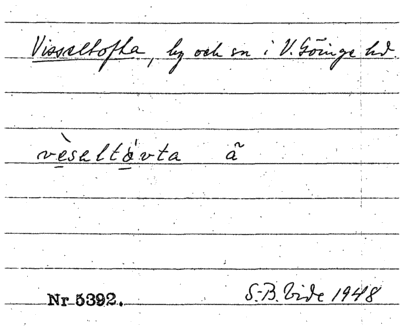 Visseltofta, by och sn i V. Göinge hd.
vèseltåvta ã
Nr 5392. S.-B. Vide 1948